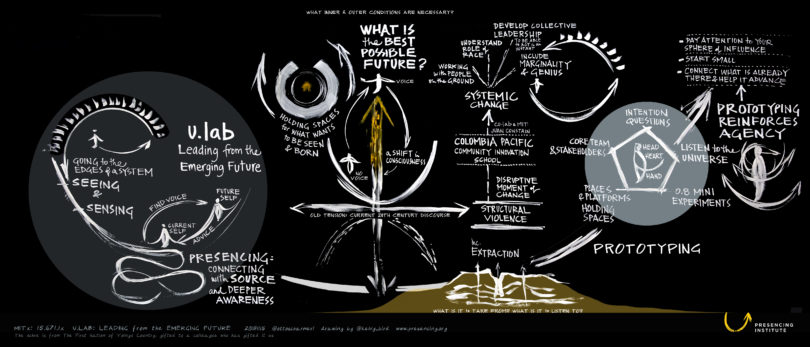 WHAT INNER & OUTER CONDITIONS ARE NECESSARY?
u.lab
Leading from the
Emerging Future
GOING to the
EDGES of a SYSTEM
SEEING
&
SENSING
FIND VOICE
FUTURE
SELF
CURRENT
SELF
ADVICE
PRESENCING:
CONNECTING
with SOURCE
and DEEPER
AWARENESS
HOLDING SPACES
for WHAT WANTS
TO BE SEEN
& BORN
WHAT IS
the BEST
POSSIBLE
FUTURE?
VOICE
NO
VOICE
a SHIFT in
CONSCIOUSNESS
OLD TENSION: CURRENT 20TH CENTURY DISCOURSE
DEVELOP COLLECTIVE
LEADERSHIP
TO BE ABLE
UNDERSTAND
ROLE of
RACE
INCLUDE
MARGINALITY
& GENIUS
WORKING
with PEOPLE
on the GROUND
SYSTEMIC
CHANGE
CO-LAB @ MIT
COLOMBIA PACIFIC
COMMUNITY INNOVATION
SCHOOL
DISRUPTIVE
MOMENT of
CHANGE
STRUCTURAL
VIOLENCE
EXTRACTION
WHAT IS IT to TAKE FROM? WHAT IS IT to LISTEN TO?
PROTOTYPING
INTENTION
QUESTIONS
CORE TEAM
& STAKEHOLDERS
HEAD
HEART
HAND
LISTEN to the
UNIVERSE
PLACES
& PLATFORMS
HOLDING
SPACES
0.8 MINI
EXPERIMENTS
- PAY ATTENTION to YOUR
SPHERE of INFLUENCE
- START SMALL
- CONNECT WHAT IS ALREADY
THERE & HELP IT ADVANCE
PROTOTYPING
REINFORCES
AGENCY
MITx: 15.671.1x U.LAB: LEADING from the EMERGING FUTURE @ottoscharmer1 drawing by @kelvy_bird www.presencing.org
PRESENCING
INSTITUTE